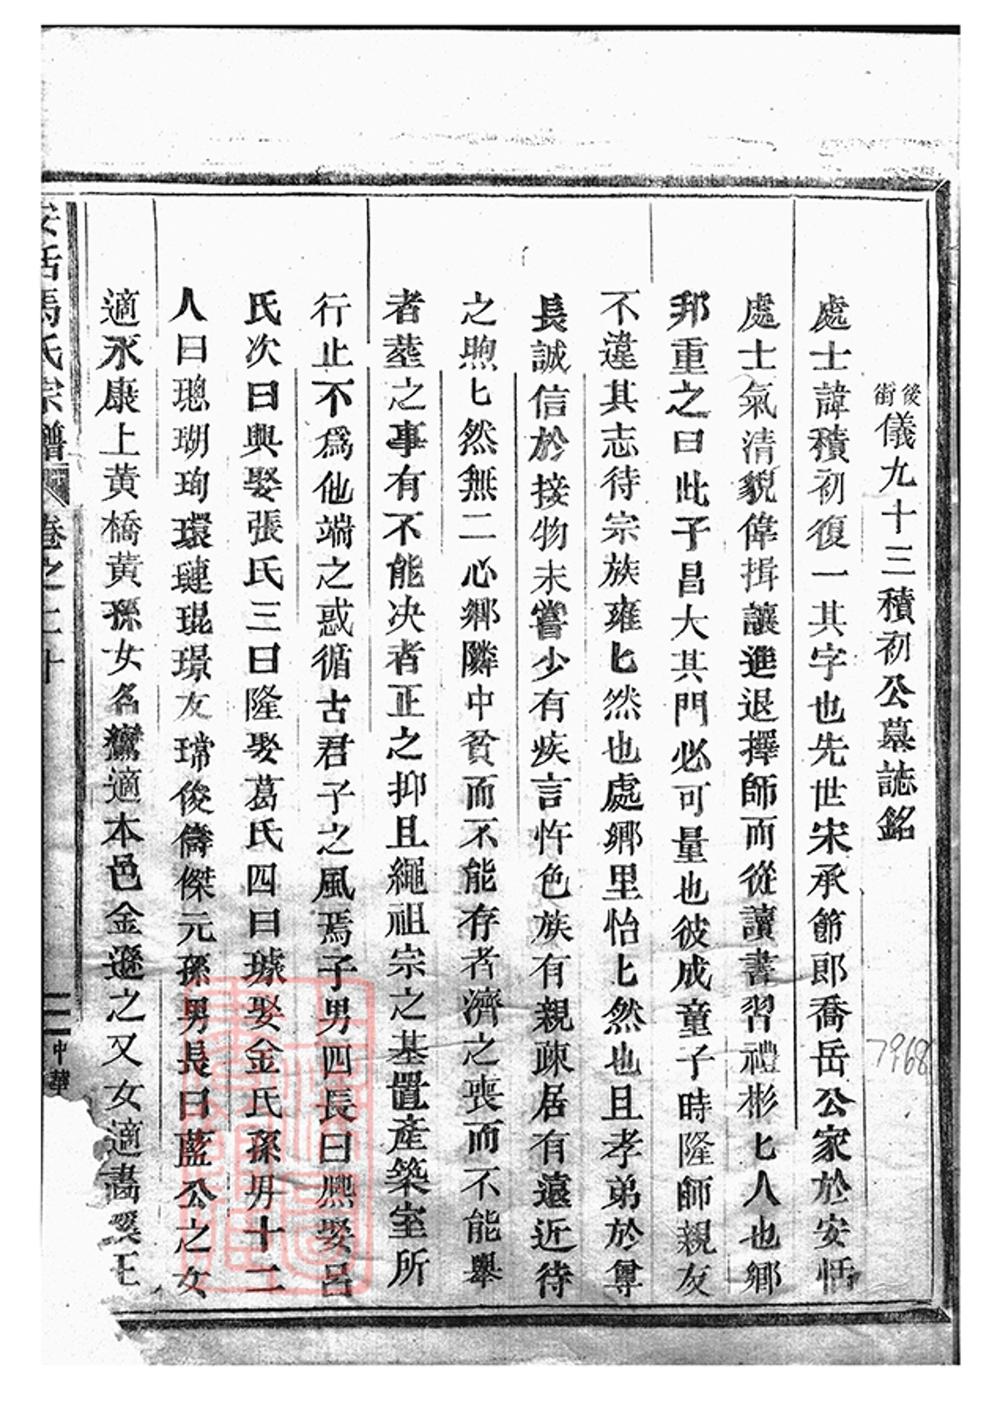 後街儀九十三積初公墓誌銘
處士諱積初復一其字也先世宋承節郎喬岳公家於安恬
處士氣清貌偉揖讓進退擇師而從讀書習禮彬匕人也鄉
邦重之曰此子昌大其門必可量也彼成童子時隆師親友
不違其志待宗族雍匕然也處鄉里怡匕然也且孝弟於尊
長誠信於接物未嘗少有疾言忤色族有親疎居有遠近待
之煦匕然無二心鄉隣中貧而不能存者濟之喪而不能舉
者塟之事有不能决者正之抑且繩祖宗之基置產築室所
行止不為他端之惑循古君子之風焉子男四長曰熈娶呂
氏次曰興娶張氏三曰隆娶葛氏四曰璩娶金氏孫男十二
人曰璁瑚珣環璉琨璟友瑺俊儔傑元孫男長曰藍公之女
適永康上黃橋黃孫女名鸞適本邑金遜之又女適畵溪王
安恬馬氏宗譜
卷之二十
二
中華
7968